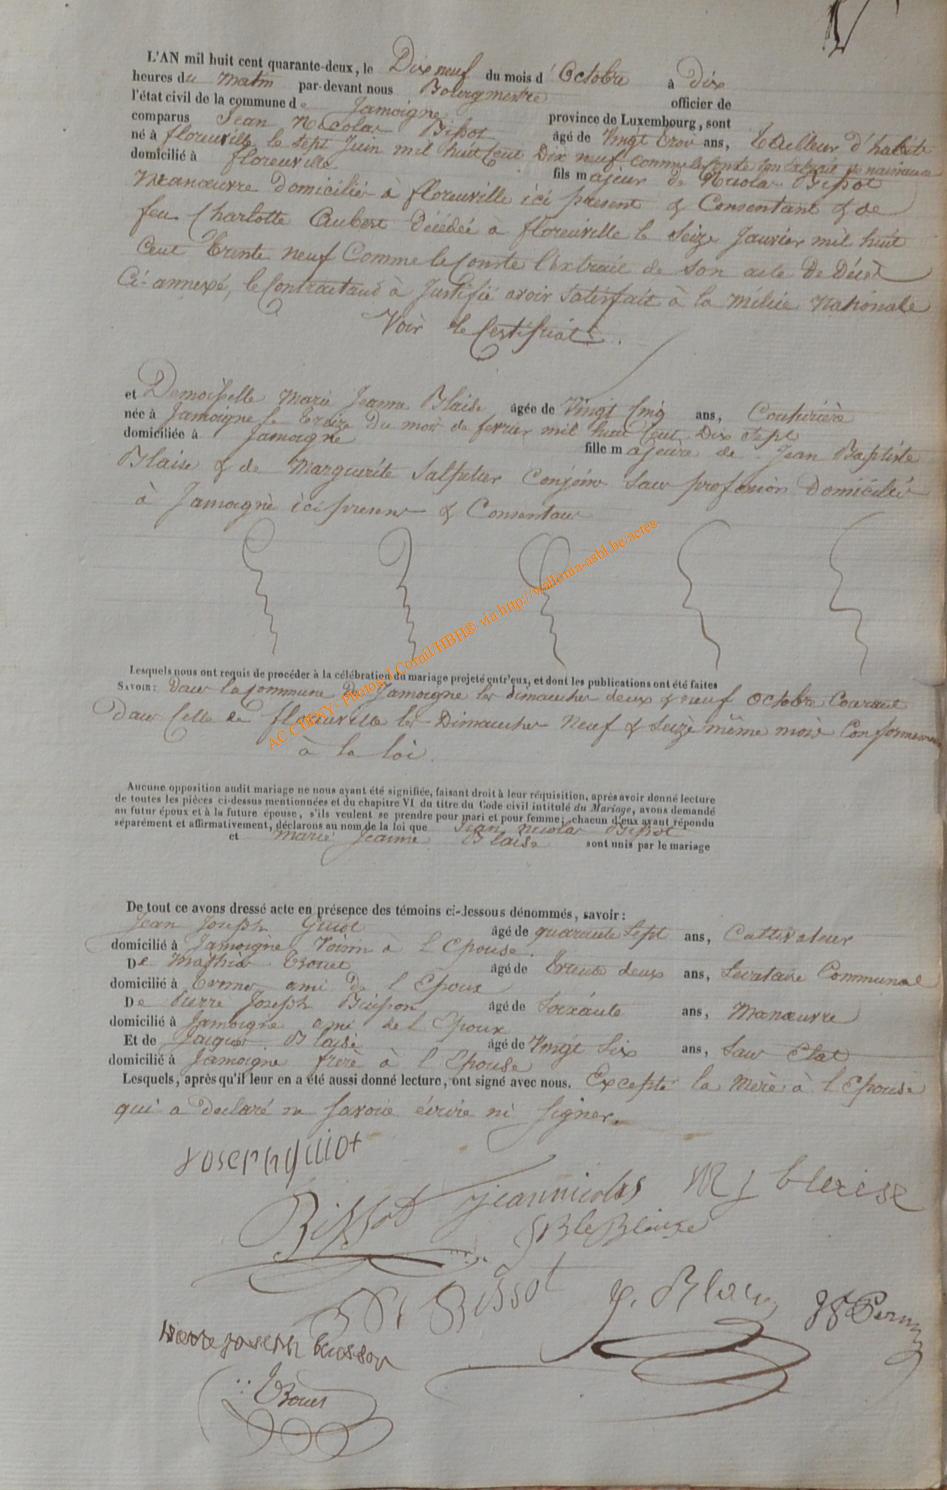 L'AN mil huit cent quarante-deux, le Dix neuf du mois d'Octobre à Dix
heures du matin par-devant nous Bourgmestre officier de
l'état civil de la commune de Jamoigne province de Luxembourg, sont
comparus Jean Nicolas Bissot âgé de Vingt trois ans, tailleur d'habits
né à florenville le sept Juin mil huit Cent Dix neuf comme le conste son extrait de naissance
domicilié à florenville fils majeur de Nicolas Bissot
Manœuvre Domicilié à florenville ici présent & Consentant & de
feu Charlotte Aubert Décédée à florenville le Seize Janvier mil huit
Cent trente neuf Comme le Conste l'extrait de son acte de Décès
Ci-annexé, le Contractant à Justifié avoir satisfait à la milice Nationale
Voir le Certificat.
et Demoiselle Marie Jeanne Blaise, âgée de Vingt Cinq ans, Couturière
née à Jamoigne le treize Du mois de fevrier mil huit Cent Dix sept
domiciliée à Jamoigne fille majeure de Jean Baptiste
Blaise & de Marguerite Salpetier Conjoins Sans profession Domiciliés
à Jamoigne ici présens & Consentans
Lesquels nous ont requis de procéder à la célébration du mariage projeté entr'eux, et dont les publications ont été faites
SAVOIR: Dans la Commune de Jamoigne les dimanches deux & neuf Octobre Courant
Dans Celle de florenville les Dimanches Neuf & Seize même mois Conformement
à la loi.
Aucune opposition audit mariage ne nous ayant été signifiée, faisant droit à leur réquisition, après avoir donné lecture
de toutes les pièces ci-dessus mentionnées et du chapitre VI du titre du Code civil intitulé du Mariage, avons demandé
au futur époux et à la future épouse, s'ils veulent se prendre pour mari et pour femme; chacun d'eux ayant répondu
séparément et affirmativement, déclarons au nom de la loi que Jean Nicolas Bissot
et Marie Jeanne Blaise sont unis par le mariage
De tout ce avons dressé acte en présence des témoins ci-dessous dénommés, savoir:
Jean Joseph Guiot âgé de quarante sept ans, Cultivateur
domicilié à Jamoigne, Voisin à l'Epouse.
De Mathias âgé de trente deux ans, Secrétaire Communal
domicilié à ami de l'Epoux
De Pierre Joseph Buisson âgé de Soixante ans, Manœuvre
domicilié à Jamoigne ami de l'Epoux
Et de Jacques Blaise âgé de Vingt Six ans, Sans Etat
domicilié à Jamoigne frère à l'Epouse
Lesquels, après qu'il leur en a été aussi donné lecture, ont signé avec nous. Excepté la Mère à l'Epouse
qui a déclaré ne savoir écrire ni signer.
Joseph guiot
Bissot jean nicolas M J blaise
JB Blaise
Bissot J. Blaise
pierre joseph buisson
AC CHINY- Photos J.Cornil/HBH® via http://wallonia-asbl.be/actes